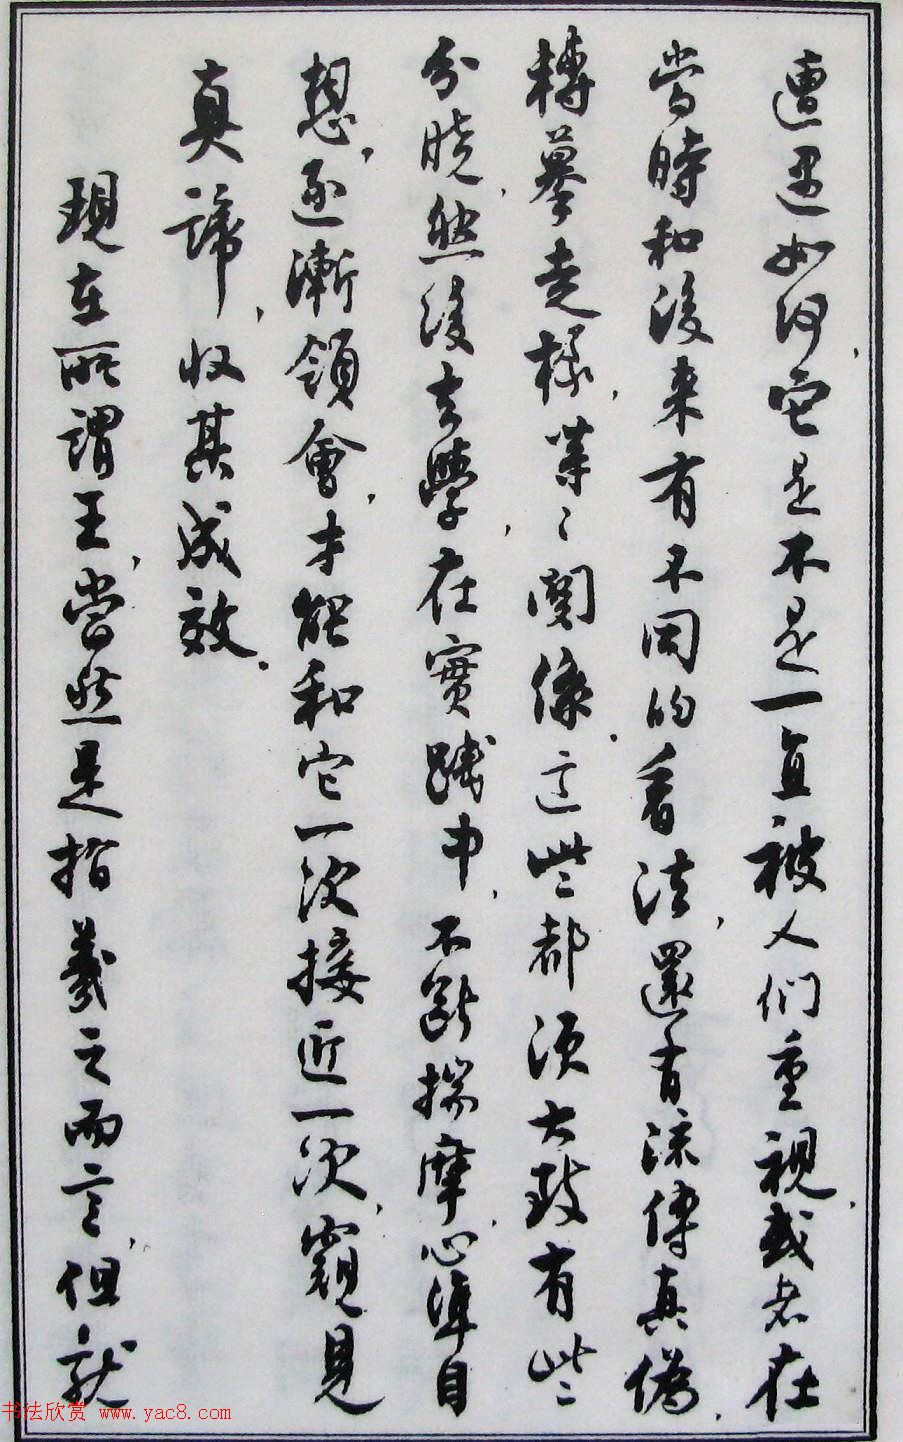 遭遇如何，它是不是一直被人們重視，或者在
當時和後来有不同的看法，還有流傳真偽，
轉摹走樣，等等関係。這些都須大致有些
分曉，然後去學，在實踐中，不斷揣摩，心準目
想，逐漸領會，才能和它一次接近一次，窺見
真諦，收其成效。
現在所謂王，當然是指羲之而言，但就
书法欣赏 www.yac8.com